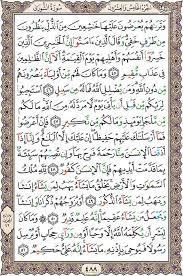 الجزء الخامس والعشرون سورة الشورى
وترىهم يعرضون عليها خشعين من الذل ينظرون
من طرف خفي وقال الذين ءامنوا إن الخسرين الذين
خسروا أنفسهم وأهليهم يوم القيمة ألا إن الظلمين
في عذاب مقيم ٤٥ وما كان لهم من أولياء ينصرونهم
من دون الله ومن يضلل الله فما له من سبيل ٤٦
استجيبوا لربكم من قبل أن يأتي يوم لا مرد له من الله
ما لكم من ملجإ يومئذ وما لكم من نكير ٤٧ فإن
أعرضوا فما أرسلنك عليهم حفيظا إن عليك إلا البلغ وإنا إذا
أذقنا الإنسن منا رحمة فرح بها وإن تصبهم سيئة
بما قدمت أيديهم فإن الإنسن كفور ٤٨ لله ملك
السموت والأرض يخلق ما يشاء يهب لمن يشاء إنثا
ويهب لمن يشاء الذكور ٤٩ أو يزوجهم ذكرانا وإنثا
ويجعل من يشاء عقيما إنه عليم قدير ٥٠ وما كان
لبشر أن يكلمه الله إلا وحيا أو من وراي حجاب أو يرسل
رسولا فيوحي بإذنه ما يشاء إنه علي حكيم ٥١
٤٨٨